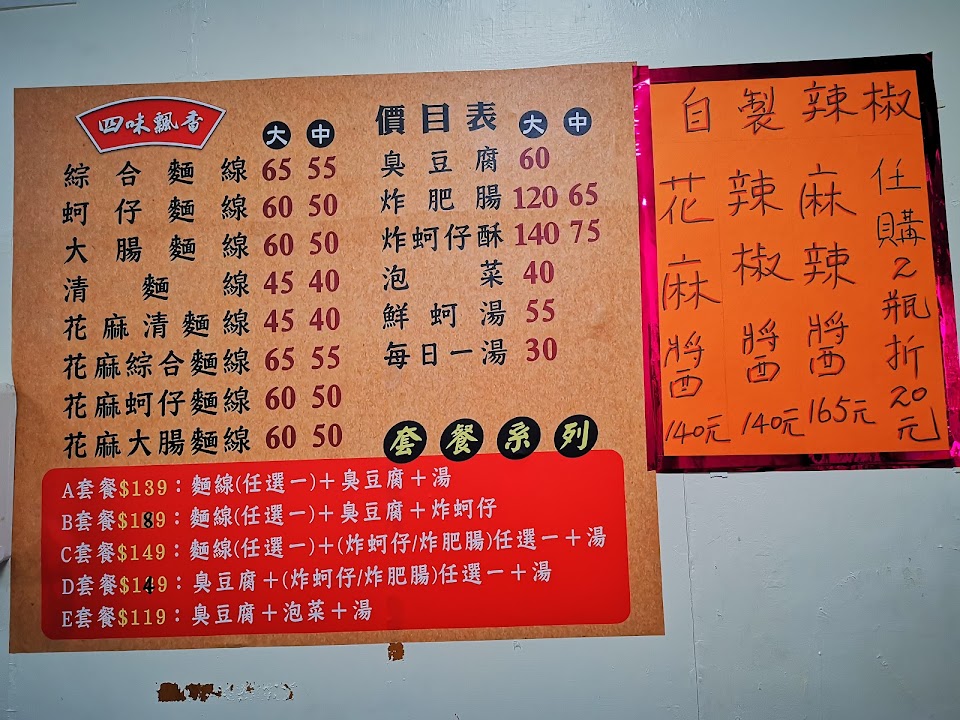 四味飄香
大 中
綜合麵線 65 55
蚵仔麵線 60 50
大腸麵線 60 50
清麵線 45 40
花麻清麵線 45 40
花麻綜合麵線 65 55
花麻蚵仔麵線 60 50
花麻大腸麵線 60 50
價目表 大 中
臭豆腐 60
炸肥腸 120 65
炸蚵仔酥 140 75
泡菜 40
鮮蚵湯 55
每日一湯 30
套餐系列
A套餐$139：麵線(任選一)＋臭豆腐＋湯
B套餐$189：麵線(任選一)＋臭豆腐＋炸蚵仔
C套餐$149：麵線(任選一)＋(炸蚵仔/炸肥腸)任選一＋湯
D套餐$149：臭豆腐＋(炸蚵仔/炸肥腸)任選一＋湯
E套餐$119：臭豆腐＋泡菜＋湯
自製辣椒
花麻醬 140元
辣椒醬 140元
麻辣醬 165元
任購2瓶折20元